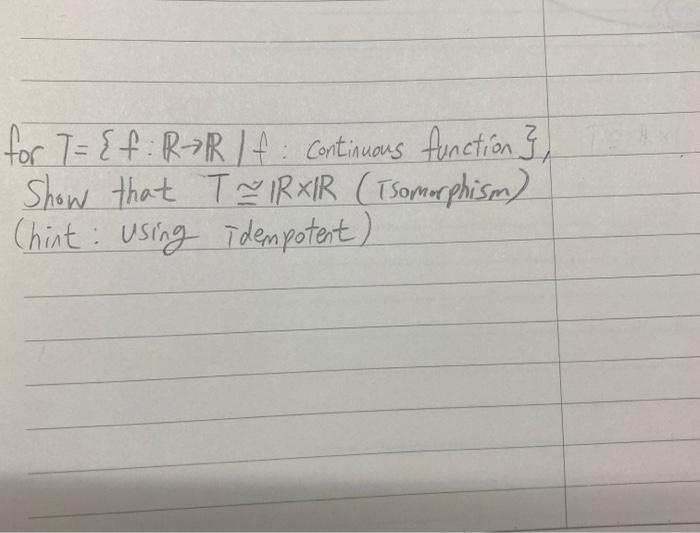 for T = { f : ℝ→ℝ | f : continuous function },
Show that T ≅ ℝ×ℝ (Isomorphism)
(hint : using idempotent)